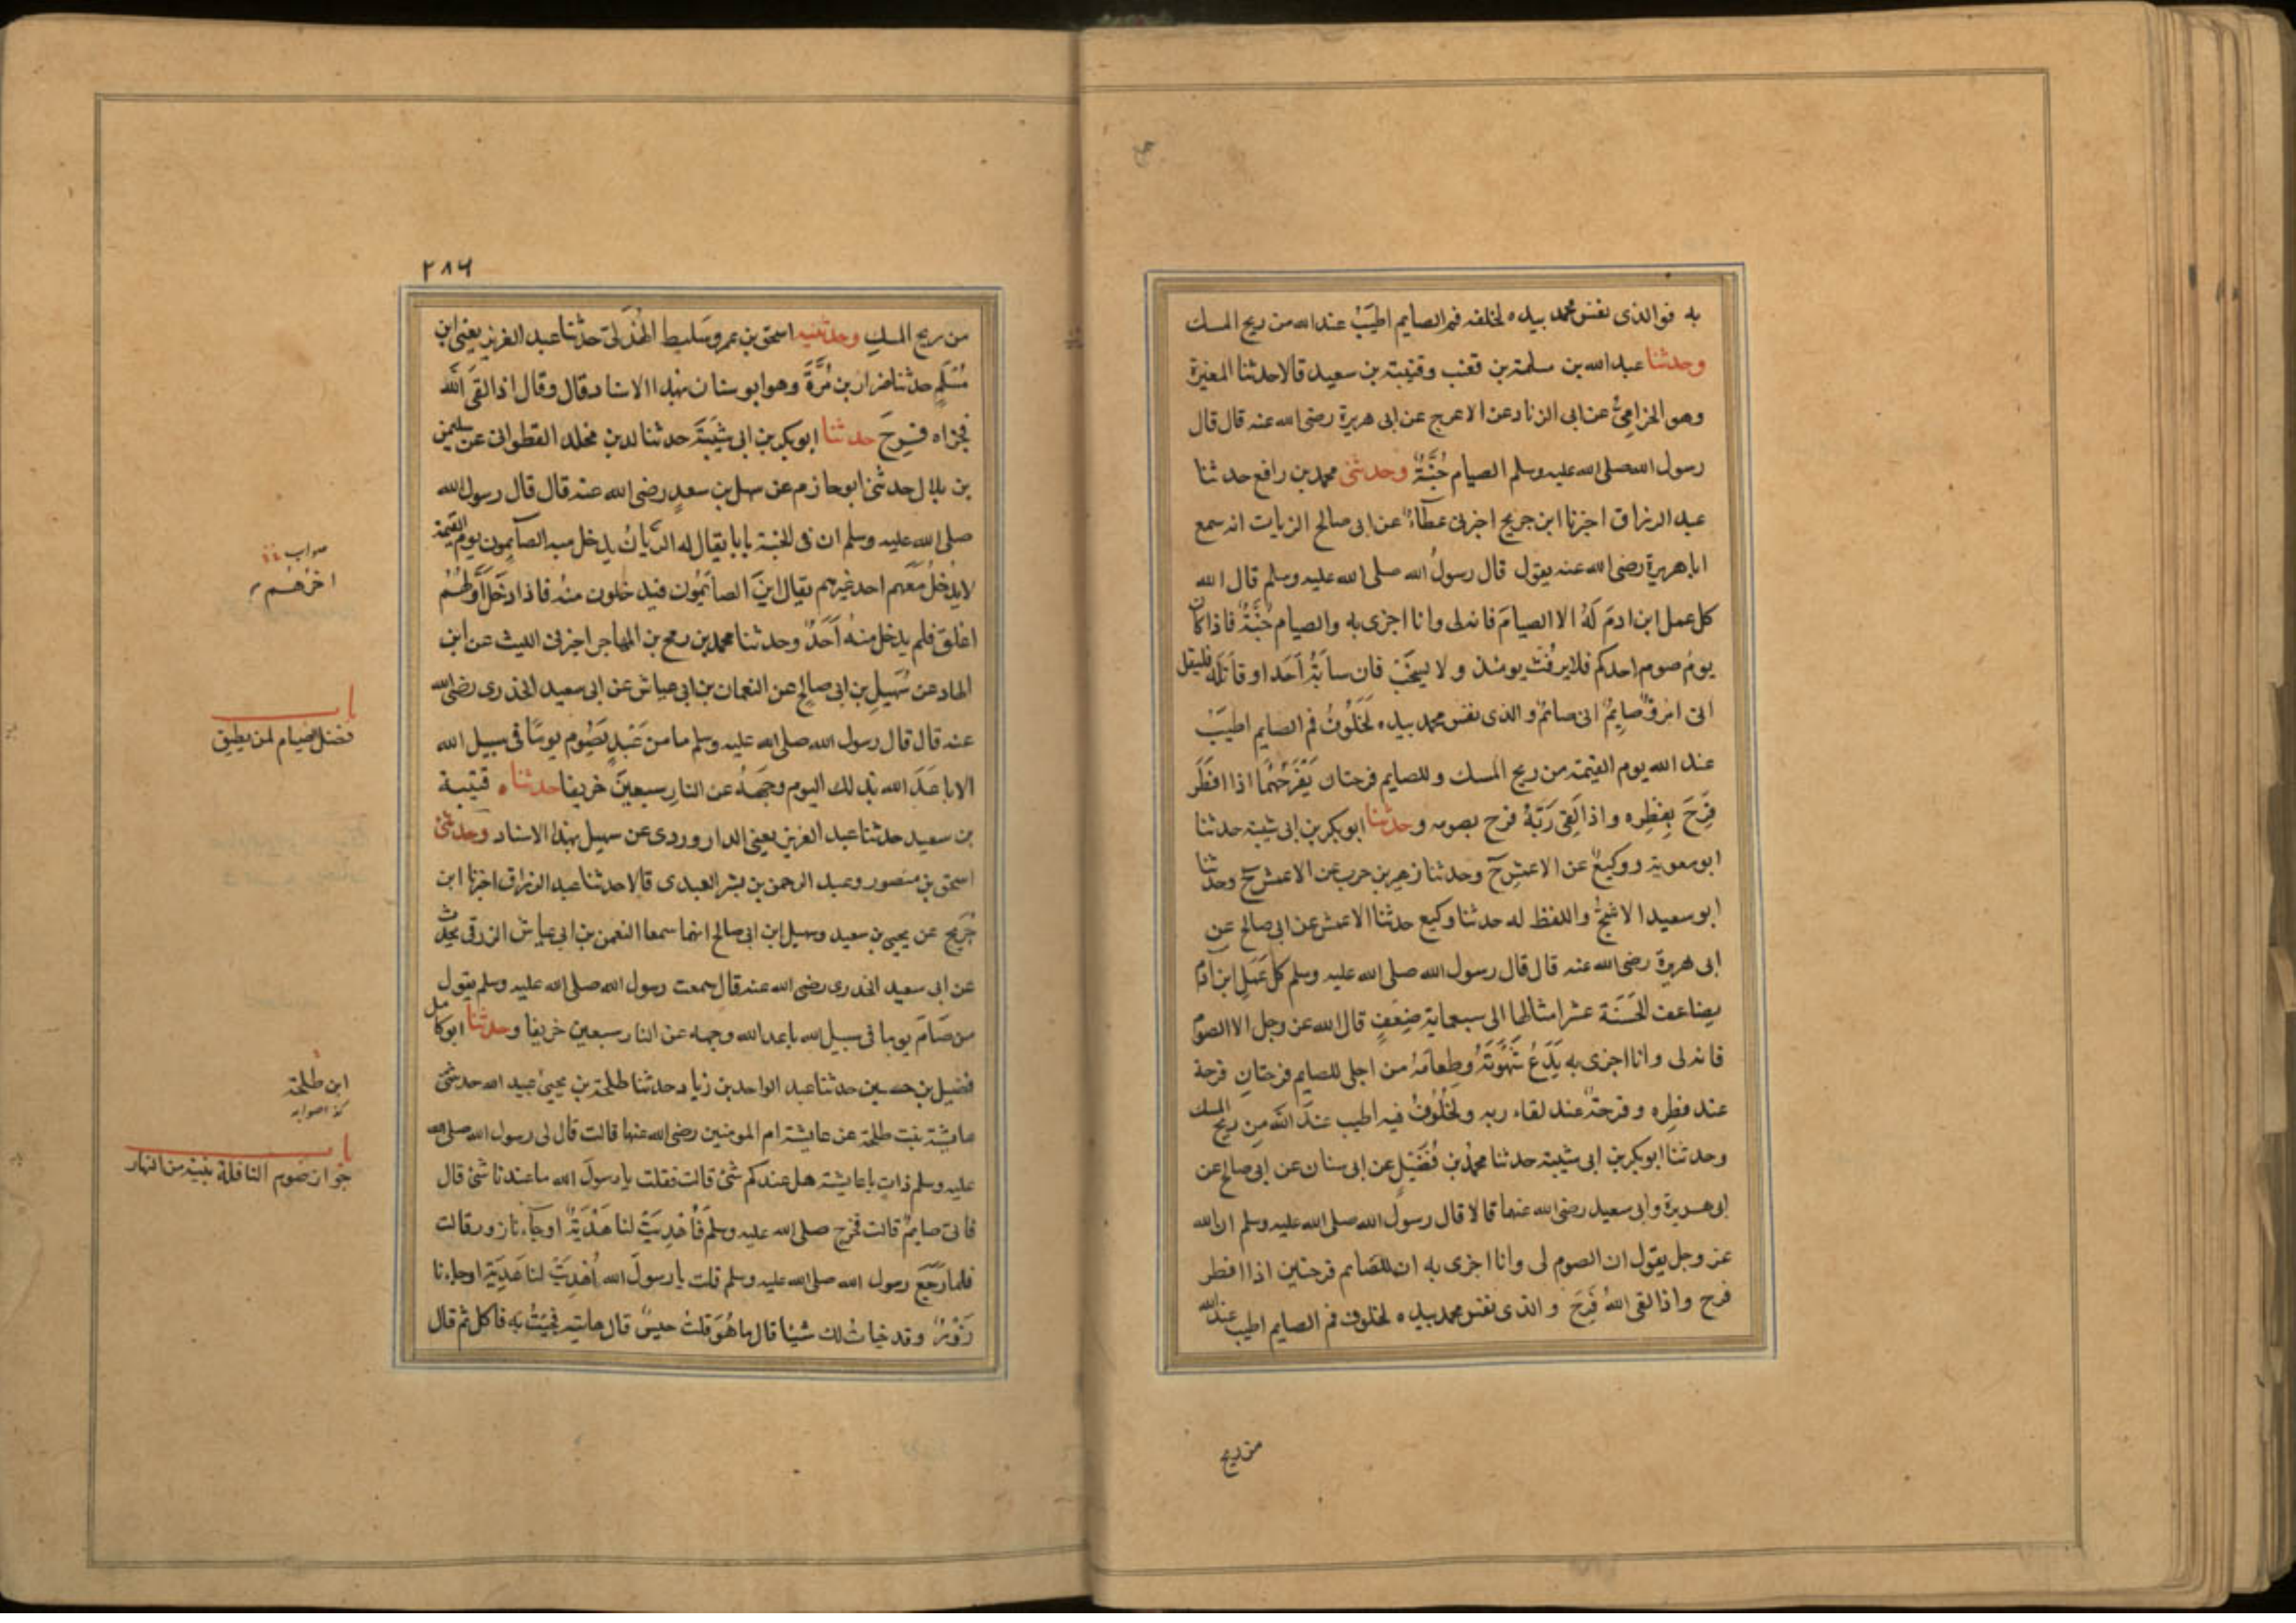 به فوالذى نفس محمد بيده لخلفه فم الصايم اطيب عند الله من ريح المسك
وحدثنا عبد الله بن مسلمة بن قعنب وقتيبة بن سعيد قالا حدثنا المغيرة
وهو الحزامى عن ابى الزناد عن الاعرج عن ابى هريرة رضى الله عنه قال قال
رسول الله صلى الله عليه وسلم الصيام جُنَّةٌ وحدثنى محمد بن رافع حدثنا
عبد الرزاق اخبرنا ابن جريج اخبرنى عطاء عن ابى صالح الزيات انه سمع
ابا هريرة رضى الله عنه يقول قال رسول الله صلى الله عليه وسلم قال الله
كل عمل ابن ادم لَهُ الا الصيامَ فانه لى وانا اجزى به والصيام جُنَّةٌ فاذا كان
يوم صوم احدكم فلا يرفُث يومئذ ولا يسخب فان سابَّهُ اَحَد او قاتَلَه فليقل
انى امرؤ صايمٌ انى صائم والذى نفس محمد بيده لَخَلُوفُ فم الصايم اطيَبُ
عند الله يوم القيمة من ريح المسك وللصايم فرحتان يَفْرَحُهُما اذا افطَرَ
فَرِحَ بفِطره واذا لَقِىَ رَبَّهُ فرح بصومه وحدثنا ابو بكر بن ابى شيبة حدثنا
ابو معوية ووكيع عن الاعمش ح وحدثنا زهير بن حرب عن الاعمش ح وحدثنا
ابو سعيد الاشج واللفظ له حدثنا وكيع حدثنا الاعمش عن ابى صالح عن
ابى هريرة رضى الله عنه قال قال رسول الله صلى الله عليه وسلم كل عَمَلِ ابن اٰدم
يضاعف الحَسَنَة عشر امثالها الى سبعماية ضِعفٍ قال الله عز وجل الا الصوم
فانه لى وانا اجزى به يَدَعُ شَهْوَتَهُ وطعامَهُ من اجلى للصايم فرحتانِ فرحة
عند فطِره وفرحةٌ عند لقاء ربه ولَخُلُوفُ فيه اطيب عند الله من ريح المسك
وحدثنا ابو بكر بن ابى شيبة حدثنا محمد بن فُضَيْلٍ عن ابى سنان عن ابى صالح عن
ابى هريرة وابى سعيد رضى الله عنهما قالا قال رسول الله صلى الله عليه وسلم ان الله
عز وجل يقول ان الصوم لى وانا اجزى به ان للصَّايم فرحتين اذا افطر
فرح واذا لقى اللهَ فَرِحَ والذى نفس محمد بيده لخلوف فم الصايم اطيب عند الله
من ريح
٢٨٦
من ريح المسك وحدثنيه اسحق بن عمرو سَليط الهُذَلى حدثنا عبد العزيز يعنى ابن
مُسْلم حدثنا ضرار بن مُرَّةَ وهو ابو سنان بهذا الاسناد قال وقال اذا لقىَ اللّٰهَ
فجزاه فَرِحَ حدثنا ابو بكر بن ابى شَيْبَةَ حدثنا لد بن مخلد القطوانى عن سليمن
بن بلال حدثنى ابو حازم عن سهل بن سعدٍ رضى الله عنه قال قال رسول الله
صلى الله عليه وسلم ان فى الجنة بابا يقال له الريّانُ يدخل منه الصآيمون يوم القيمة
لا يدخُلُ مَعَهم احد غيرهم يقال اينَ الصائمُون فيدخلون منهُ فاذا دَخَلَ اَوّلُهُمْ
اغلق فلم يدخل منهُ اَحَدٌ وحدثنا محمد بن رمح بن المهاجر اخبرنى الليث عن ابن
الهاد عن سُهيل بن ابى صالحٍ عن النعمان بن ابى عياش عن ابى سعيد الخدرى رضى الله
عنه قال قال رسول الله صلى الله عليه وسلم ما من عَبْدٍ يَصُوم يومًا فى سبيل الله
الا باعَدَ الله بذلك اليوم وجهَهُ عن النارِ سبعينَ خريفا حدثناه قتيبة
بن سعيد حدثنا عبد العزيز يعنى الداروردى عن سهيل بهذا الاسناد وحدثنى
اسحق بن منصور وعبد الرحمن بن بشر العبدى قالا حدثنا عبد الرزاق اخبرنا ابن
جُرَيج عن يحيى بن سعيد وسهيل ابن ابى صالح انهما سمعا النعمن بن ابى عياش الزرقى يحدث
عن ابى سعيد الخدرى رضى الله عنه قال سمعت رسول الله صلى الله عليه وسلم يقول
من صَامَ يوما فى سبيل الله باعد الله وجهه عن النار سبعين خريفا وحدثنا ابو كامل
فضيل بن حسين حدثنا عبد الواحد بن زياد حدثنا طلحة بن يحيى عبيد الله حدثتنى
عايشة بنت طلحة عن عايشة ام المومنين رضى الله عنها قالت قال لى رسول الله صلى الله
عليه وسلم ذات يا عايشة هل عندكم شئ قالت فقلت يا رسولَ الله ما عندنا شئ قال
فانى صايمٌ قالت فخرج صلى الله عليه وسلم فَاُهْدِيَتْ لنا هَدْيَةٌ او جآءنا زور قالت
فلما رَجَعَ رسول الله صلى الله عليه وسلم قلت يا رسولَ الله اُهْدِيَتْ لنا هَدِيّة او جاءنا
زَوْرٌ وقد خبات لك شيئا قال ما هُوَ قلتُ حيسٌ قال هاتيه فجِئتُ به فاكل ثم قال
صواب
اخرُهُم
باب
فضل الصيام لمن يطيق
ابن طلحة
كذا صوابه
باب
جواز صوم النافلة بنية من النهار